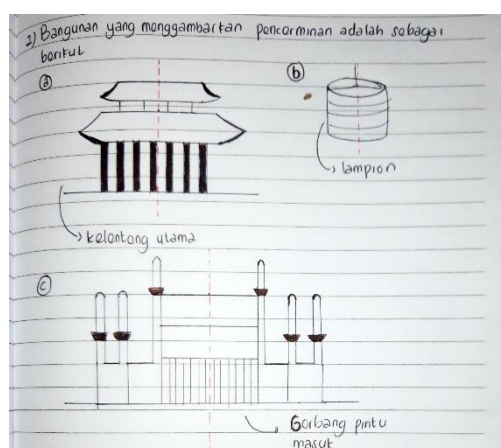 2) Bangunan yang menggambarkan pencerminan adalah sebagai
berikut
(a)
(b)
lampion
kelontong utama
(c)
Gerbang pintu
masuk